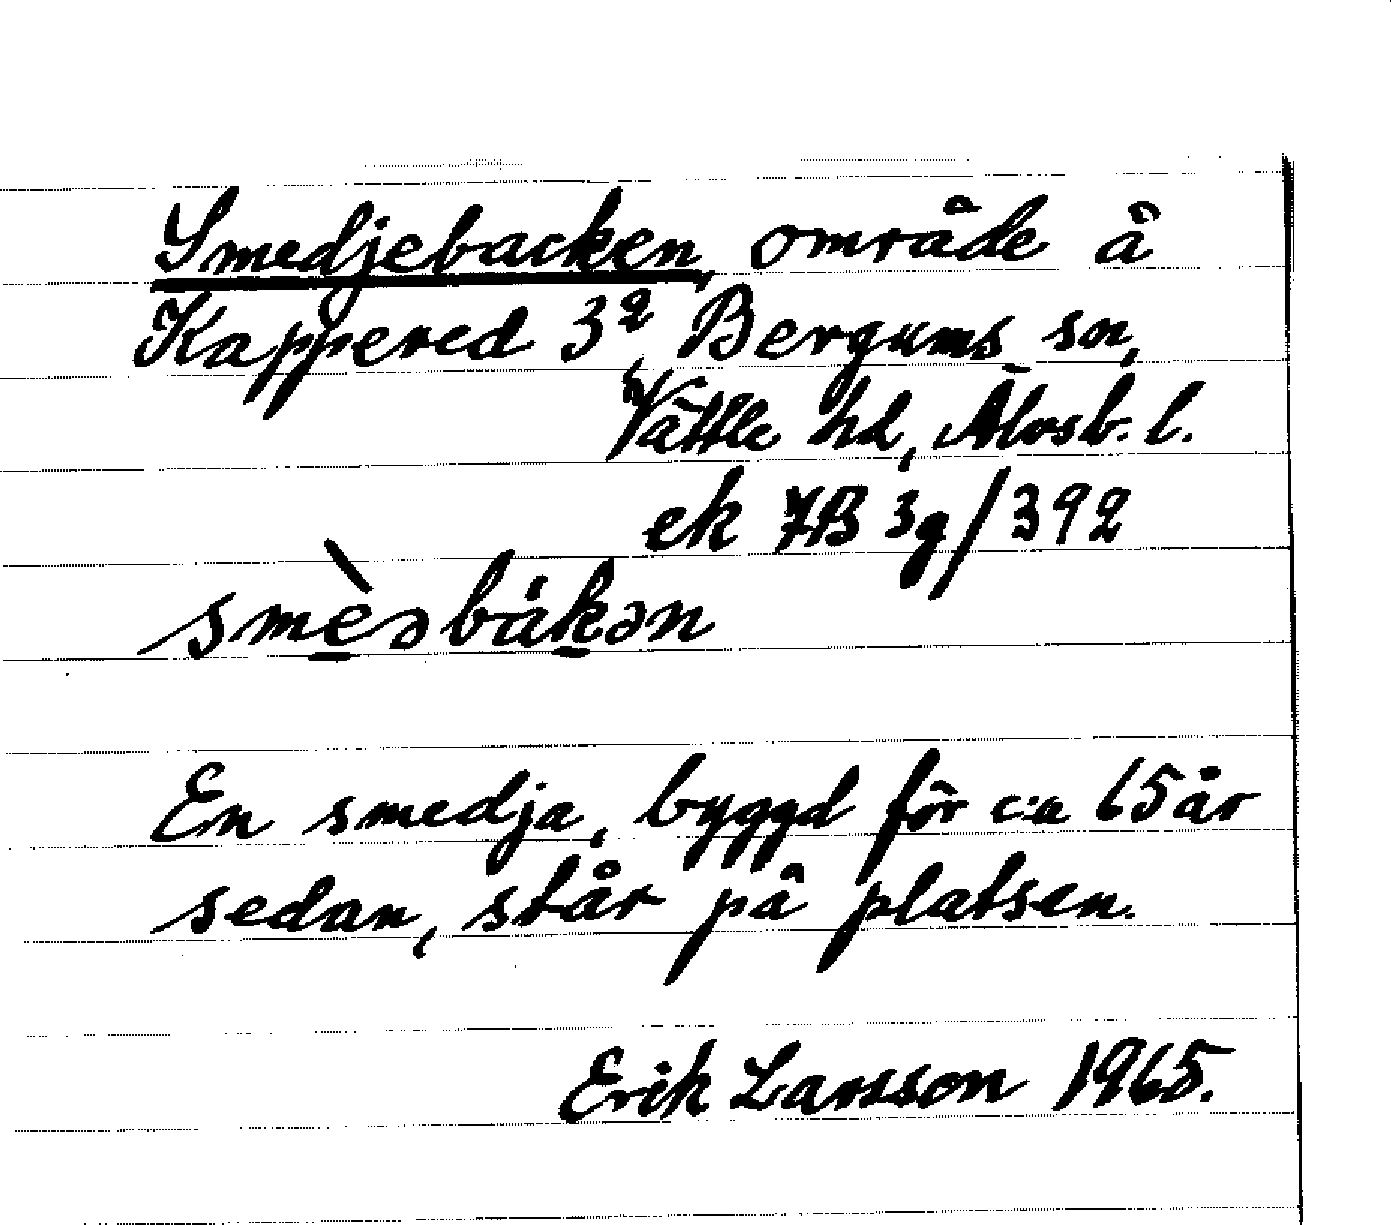 Smedjebacken, område å
Kappered 3², Bergums sn,
Vättle hd, Älvsb. l.
ek 7B 3g/392
smèəbåkən
En smedja, byggd för c:a 65 år
sedan, står på platsen.
Erik Larsson 1965.